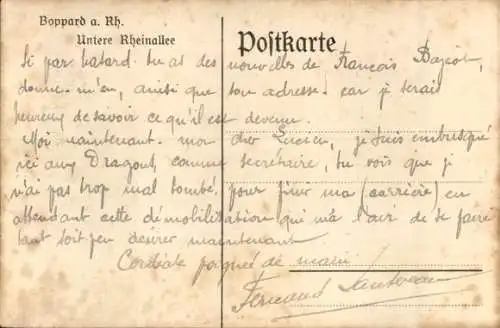 Boppard a. Rh.
Untere Rheinallee
Postkarte
Si par hasard tu as des nouvelles de François
donne-m'en, ainsi que son adresse. car je serais
heureux de savoir ce qu'il est devenu.
Moi, maintenant. mon cher Lucien, je suis embusqué
ici aux Dragons, comme secrétaire, tu vois que je
n'ai pas trop mal tombé, pour finir ma (carrière) en
attendant cette démobilisation qui m'a l'air de se faire
tant soit peu désirer maintenant
Cordiale poignée de main
Fernand